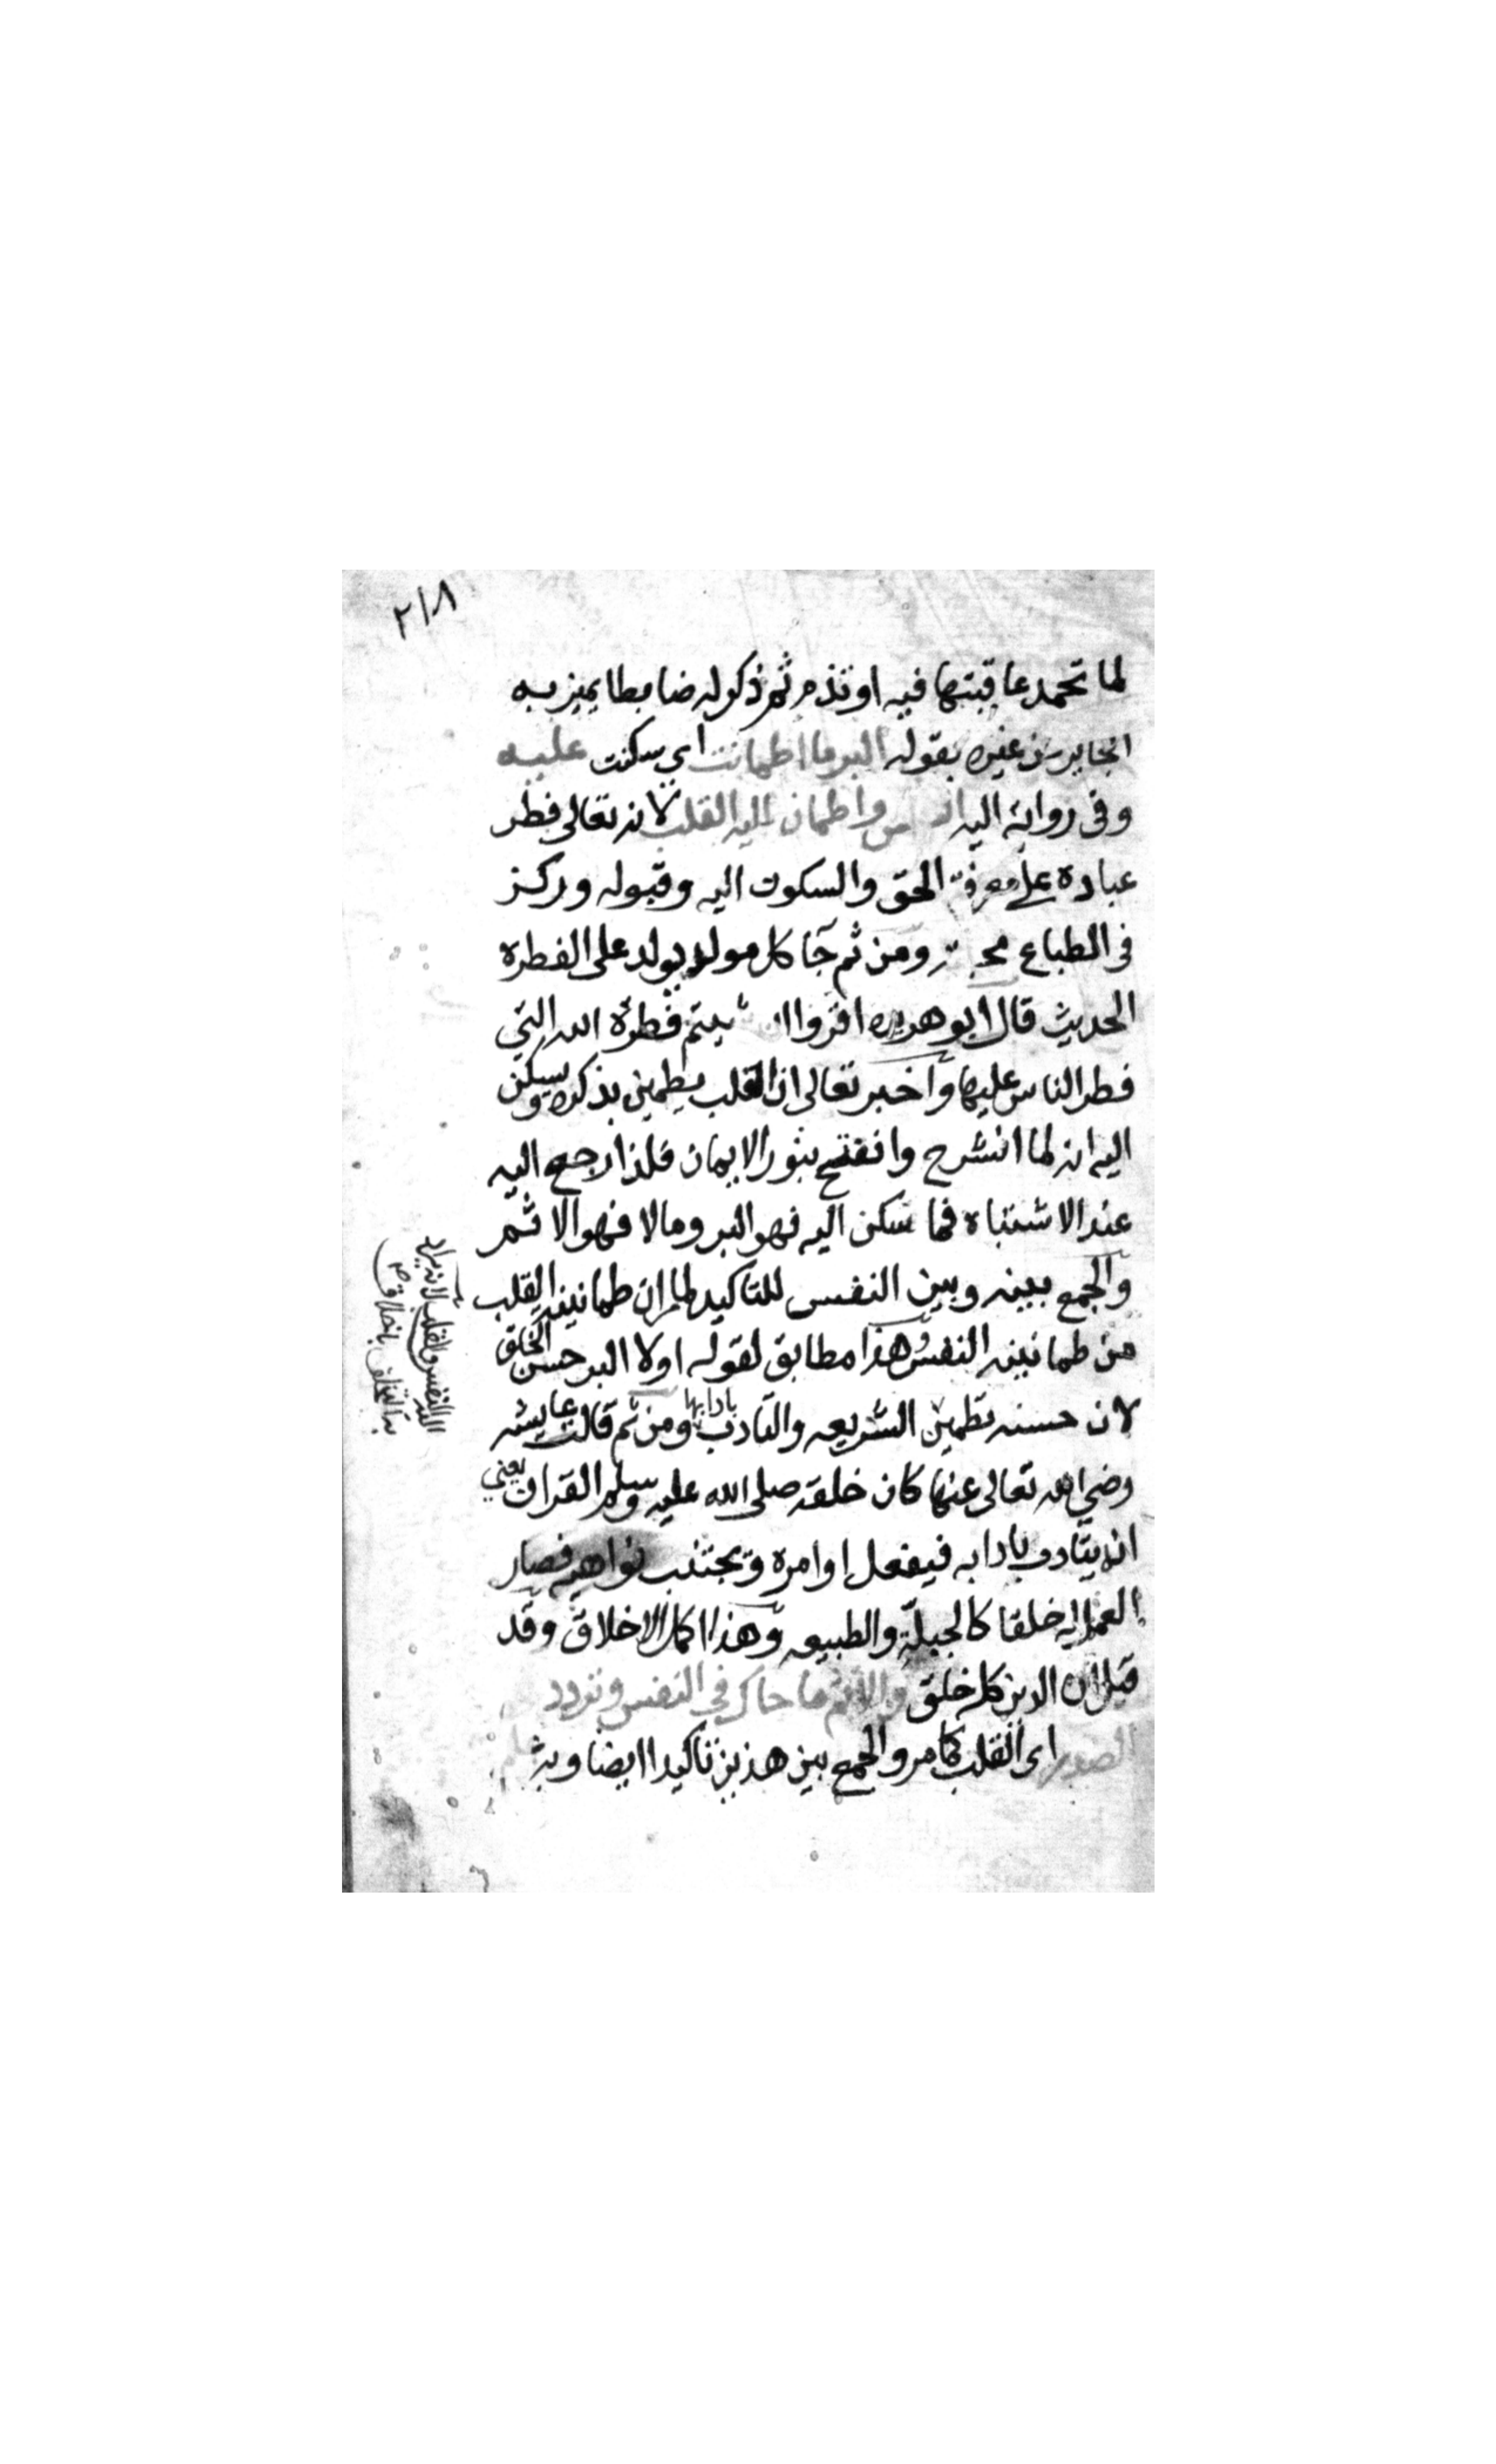 ٢١٨
لما تحمد عاقبتها فيه او تذم ثم ذكر له ضابطا يميز به
الجايز من غيره بقوله البر ما اطمانت اي سكنت عليه
وفي رواية اليه النفس واطمان اليه القلب لانه تعالى فطر
عباده على معرفة الحق والسكون اليه وقبوله وركز
في الطباع محبته ومن ثم جا كل مولد يولد على الفطرة
الحديث قال ابو هريره اقروا ان شيتم فطرة الله التي
فطر الناس عليها واخبر تعالى ان القلب يطمين بذكره ويسكن
اليه انه لما انشرح وانفتح بنور الايمان فلذا رجع اليه
عند الاشتباه فما سكن اليه فهو البر وما لا فهو الاثم
والجمع بينه وبين النفس للتاكيد لما مر ان طمانينة القلب
من طمانينه النفس وهذا مطابق لقوله اولا البر حسن الخلق
لان حسنه تطمين الشريعه والتادب بادابها ومن ثم قالت عايشه
رضي الله تعالى عنها كان خلقه صلى الله عليه وسلم القران يعني
انه يتادب بادابه فيفعل اوامره ويجتنب نواهيه فصار
العمل به خلقا كالجبلّة والطبيعه وهذا اكمل الاخلاق وقد
قيل ان الدين كله خلق والاثم ما حاك في النفس وتردد
الصدر اى القلب كما مر والجمع بين هذين تاكيدا ايضا وبه
اليه النفس والقلب لانه يراد
به التخلق باخلاق